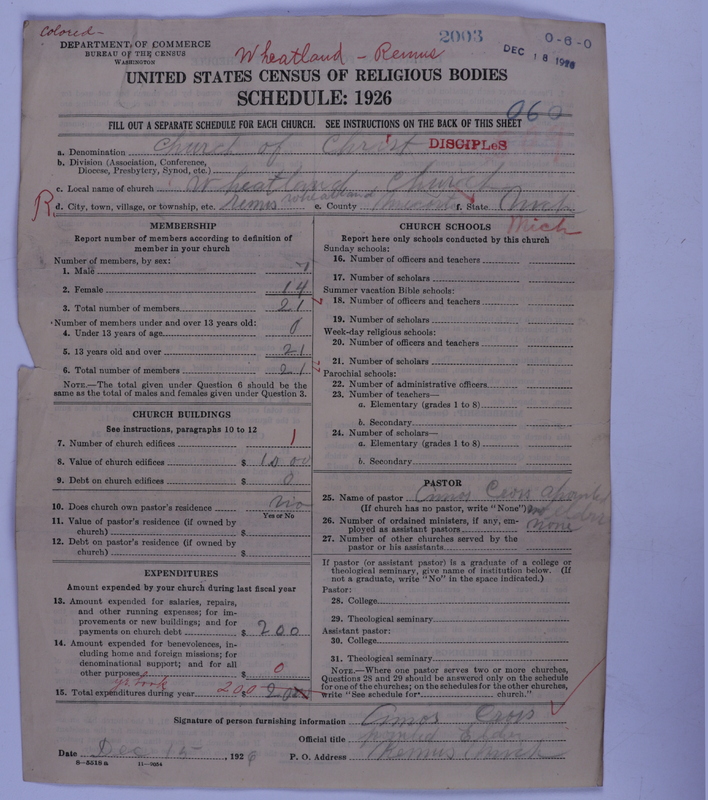 Colored-
DEPARTMENT OF COMMERCE
BUREAU OF THE CENSUS
WASHINGTON
Wheatland - Remus
2003
0-6-0
DEC 18 1926
UNITED STATES CENSUS OF RELIGIOUS BODIES
SCHEDULE: 1926
FILL OUT A SEPARATE SCHEDULE FOR EACH CHURCH. SEE INSTRUCTIONS ON THE BACK OF THIS SHEET
060
a. Denomination Church of Christ DISCIPLES
b. Division (Association, Conference,
Diocese, Presbytery, Synod, etc.)
c. Local name of church Wheatland Church
R d. City, town, village, or township, etc. Remus Wheatland e. County f. State Mich
Mich
MEMBERSHIP
Report number of members according to definition of
member in your church
Number of members, by sex:
1. Male 7
2. Female 14
3. Total number of members 21
Number of members under and over 13 years old:
4. Under 13 years of age 0
5. 13 years old and over 21
6. Total number of members 21
NOTE.—The total given under Question 6 should be the
same as the total of males and females given under Question 3.
CHURCH BUILDINGS
See instructions, paragraphs 10 to 12
7. Number of church edifices 1
8. Value of church edifices $ 1000
9. Debt on church edifices $ 0
10. Does church own pastor's residence No
Yes or No
11. Value of pastor's residence (if owned by
church) $
12. Debt on pastor's residence (if owned by
church) $
EXPENDITURES
Amount expended by your church during last fiscal year
13. Amount expended for salaries, repairs,
and other running expenses; for im-
provements or new buildings; and for
payments on church debt $ 200
14. Amount expended for benevolences, in-
cluding home and foreign missions; for
denominational support; and for all
other purposes $ 0
15. Total expenditures during year 200 $ 200
CHURCH SCHOOLS
Report here only schools conducted by this church
Sunday schools:
16. Number of officers and teachers
17. Number of scholars
Summer vacation Bible schools:
18. Number of officers and teachers
19. Number of scholars
Week-day religious schools:
20. Number of officers and teachers
21. Number of scholars
Parochial schools:
22. Number of administrative officers
23. Number of teachers—
a. Elementary (grades 1 to 8)
b. Secondary
24. Number of scholars—
a. Elementary (grades 1 to 8)
b. Secondary
PASTOR
25. Name of pastor Amos Cross
(If church has no pastor, write "None") elder
26. Number of ordained ministers, if any, em-
ployed as assistant pastors none
27. Number of other churches served by the
pastor or his assistants
If pastor (or assistant pastor) is a graduate of a college or
theological seminary, give name of institution below. (If
not a graduate, write "No" in the space indicated.)
Pastor:
28. College
29. Theological seminary
Assistant pastor:
30. College
31. Theological seminary
NOTE.—Where one pastor serves two or more churches,
Questions 28 and 29 should be answered only on the schedule
for one of the churches; on the schedules for the other churches,
write "See schedule for* church."
Signature of person furnishing information Amos Cross
Official title Elder
Date Dec 15 1926 P. O. Address Remus Mich
8—5518 a 11—9054